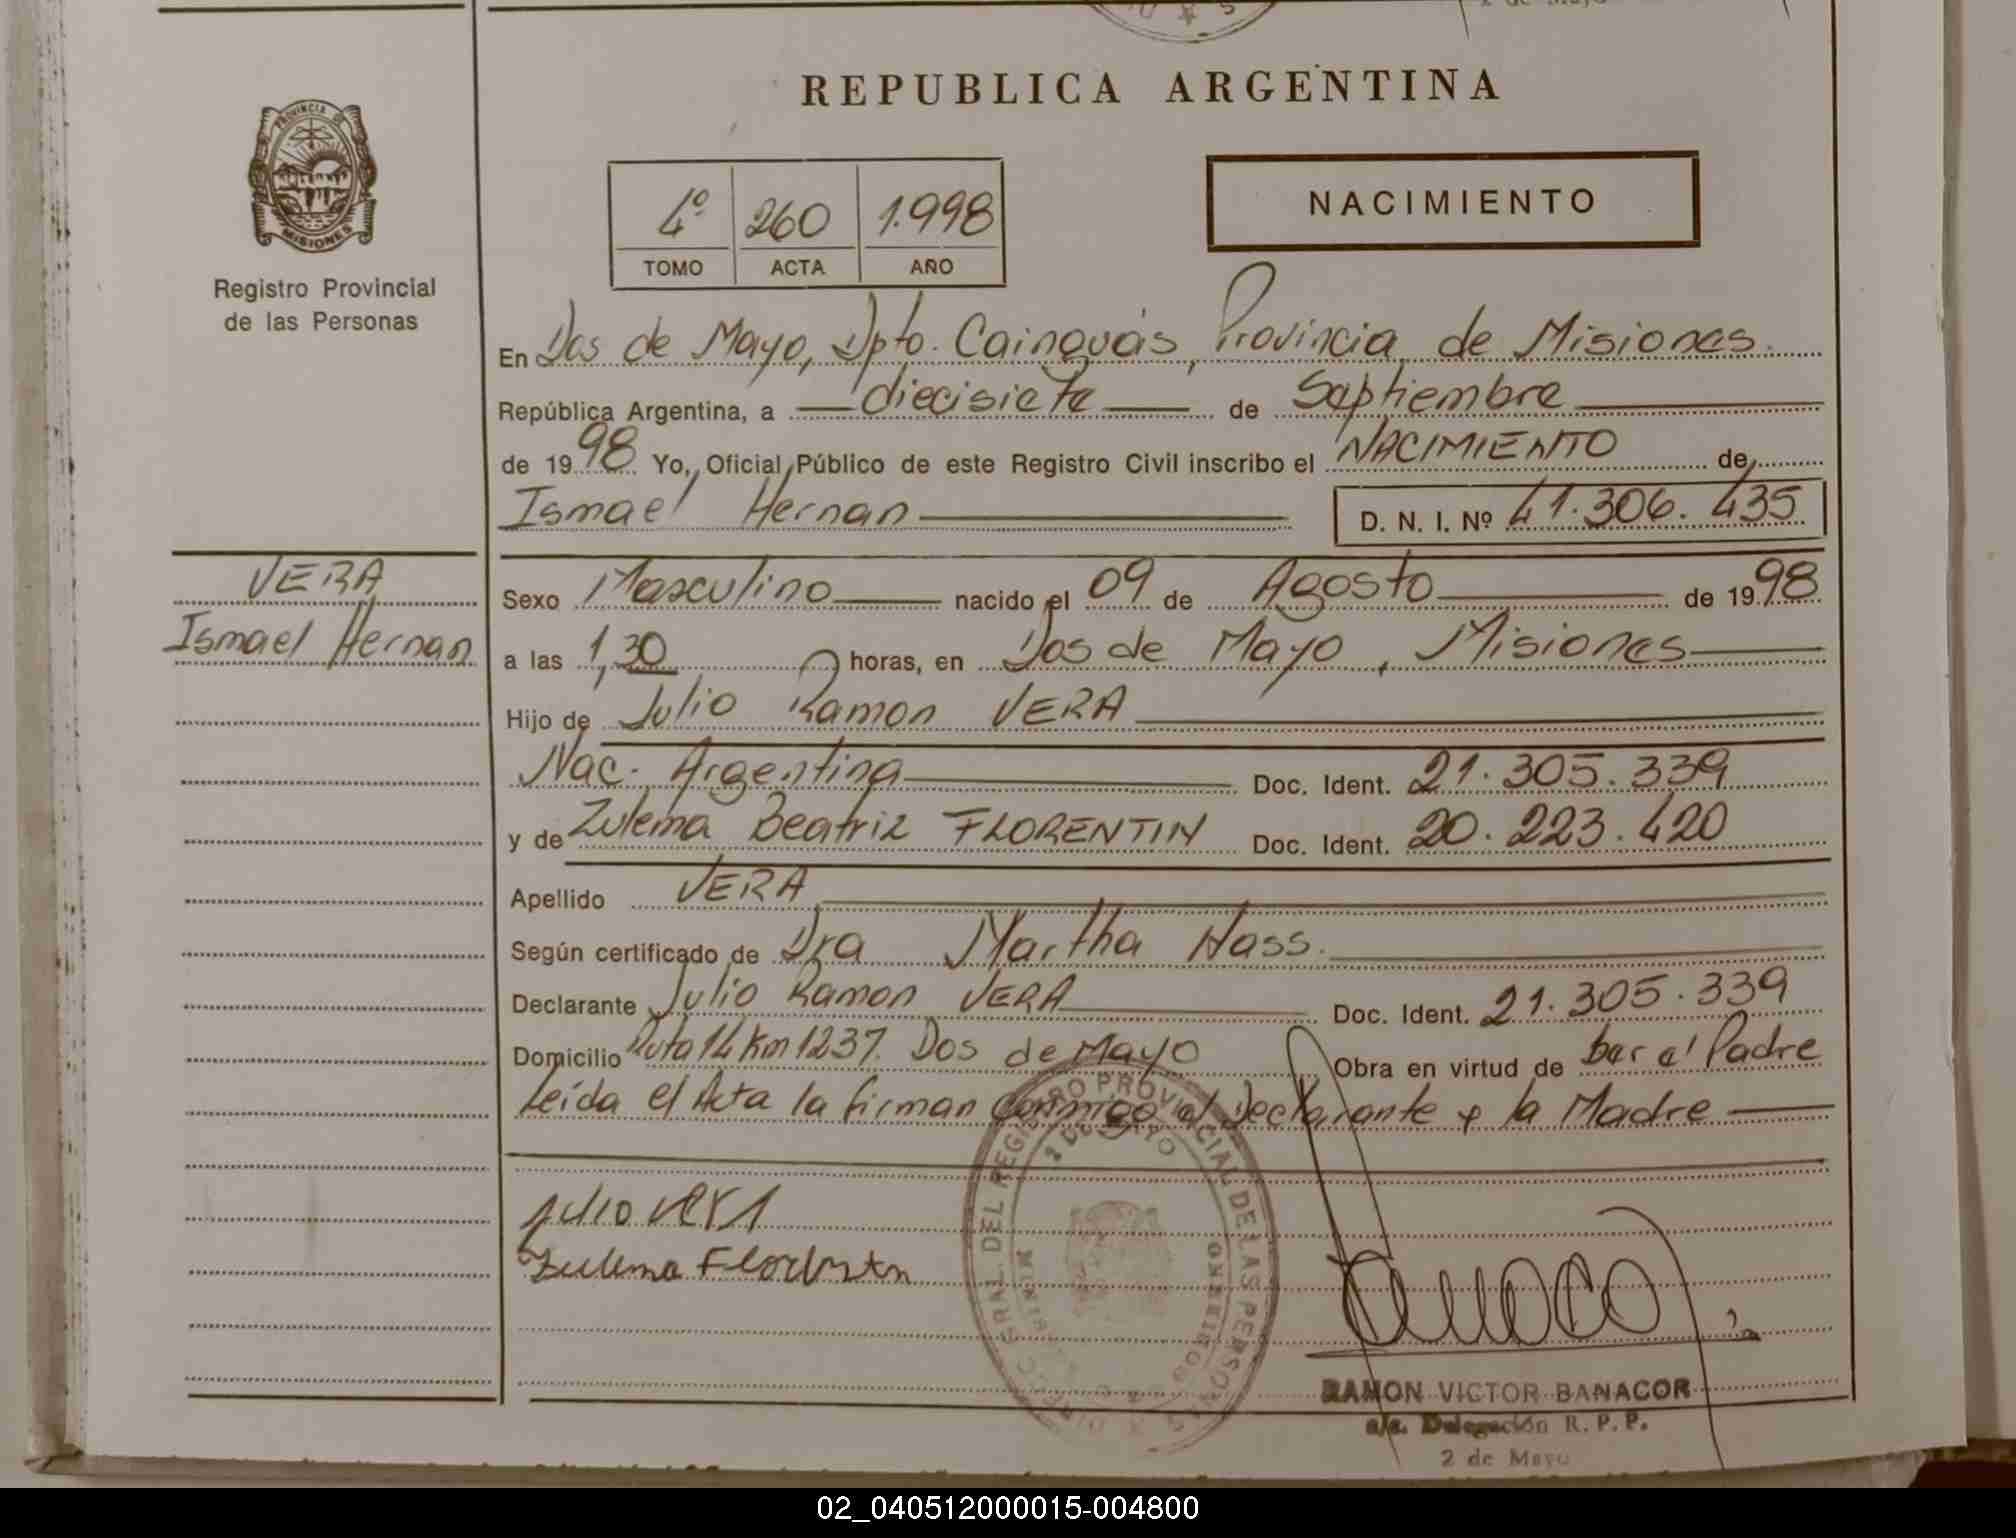 REPUBLICA ARGENTINA
PROVINCIA DE
MISIONES
Registro Provincial
de las Personas
4º 260 1.998
TOMO ACTA AÑO
NACIMIENTO
En Dos de Mayo, Dpto. Cainguás, Provincia de Misiones.
República Argentina, a diecisiete de Septiembre
de 1998 Yo, Oficial Público de este Registro Civil inscribo el NACIMIENTO de
Ismael Hernan D. N. I. Nº 41.306.435
VERA
Ismael Hernan
Sexo Masculino nacido el 09 de Agosto de 1998
a las 1,30 horas, en Dos de Mayo, Misiones
Hijo de Julio Ramon VERA
Nac. Argentina Doc. Ident. 21.305.339
y de Zulema Beatriz FLORENTIN Doc. Ident. 20.223.420
Apellido VERA
Según certificado de Dra Martha Hass.
Declarante Julio Ramon VERA Doc. Ident. 21.305.339
Domicilio Ruta 14 Km 1237. Dos de Mayo Obra en virtud de ber el Padre
Leída el Acta la firman conmigo el Declarante y la Madre
Julio Vera
Zulema Florentin
DIREC. GRAL. DEL REGISTRO PROVINCIAL DE LAS PERSONAS
2 DE MAYO
RAMON VICTOR BANACOR
a/c. Delegación R. P. P.
2 de Mayo
02_040512000015-004800